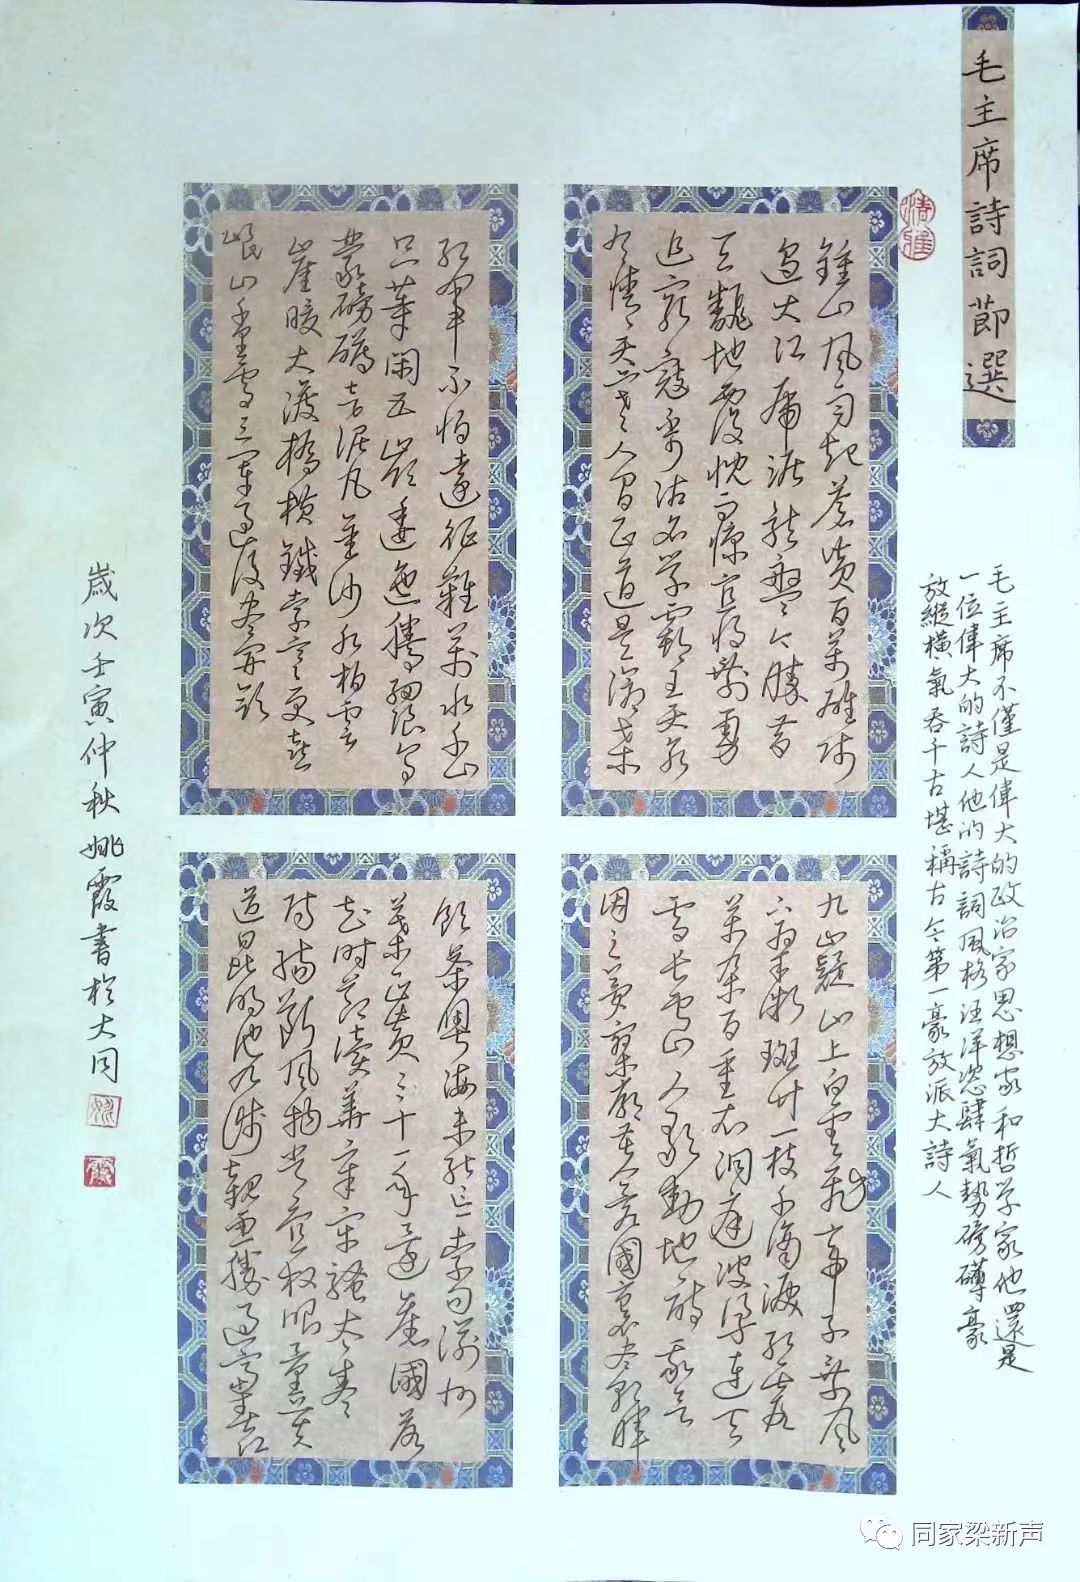 毛主席詩詞節選
清雅
毛主席不僅是偉大的政治家思想家和哲学家他還是
一位偉大的詩人他的詩詞風格汪洋恣肆氣勢磅礴豪
放縱橫氣吞千古堪稱古今第一豪放派大詩人
鍾山風雨起蒼黃百萬雄師
過大江虎踞龍盤今勝昔
天翻地覆慨而慷宜將剩勇
追窮寇不可沽名學霸王天若
有情天亦老人間正道是滄桑
紅軍不怕遠征難萬水千山
只等閑五嶺逶迤騰細浪烏
蒙磅礴走泥丸金沙水拍雲
崖暖大渡橋橫鐵索寒更喜
岷山千里雪三軍過後盡開顏
九嶷山上白雲飛帝子乘風
下翠微斑竹一枝千滴淚紅霞
萬朵百重衣洞庭波涌連天
雪長島人歌動地詩我欲
因之夢寥廓芙蓉國裏盡朝暉
飲茶粵海未能忘索句渝州
葉正黃三十一年還舊國落
花時節讀華章牢騷太盛
防腸斷風物長宜放眼量莫
道昆明池水淺觀魚勝過富春江
歲次壬寅仲秋姚霞書於大同
姚
霞
同家梁新声